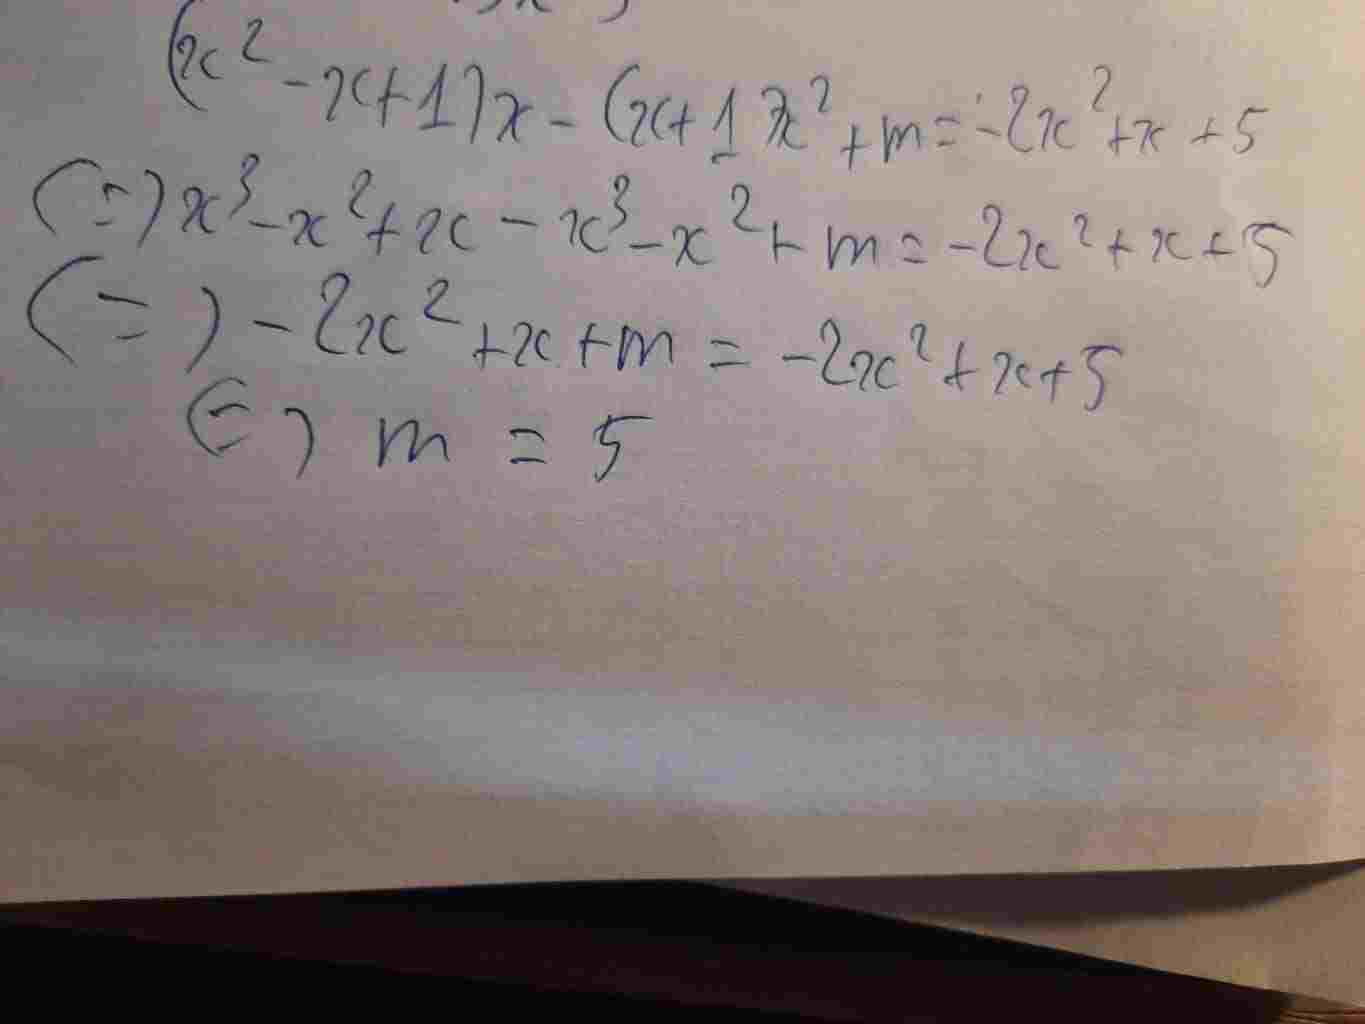 (x² - x + 1)x - (x + 1)x² + m = -2x² + x + 5
(=) x³ - x² + x - x³ - x² + m = -2x² + x + 5
(=) -2x² + x + m = -2x² + x + 5
(=) m = 5